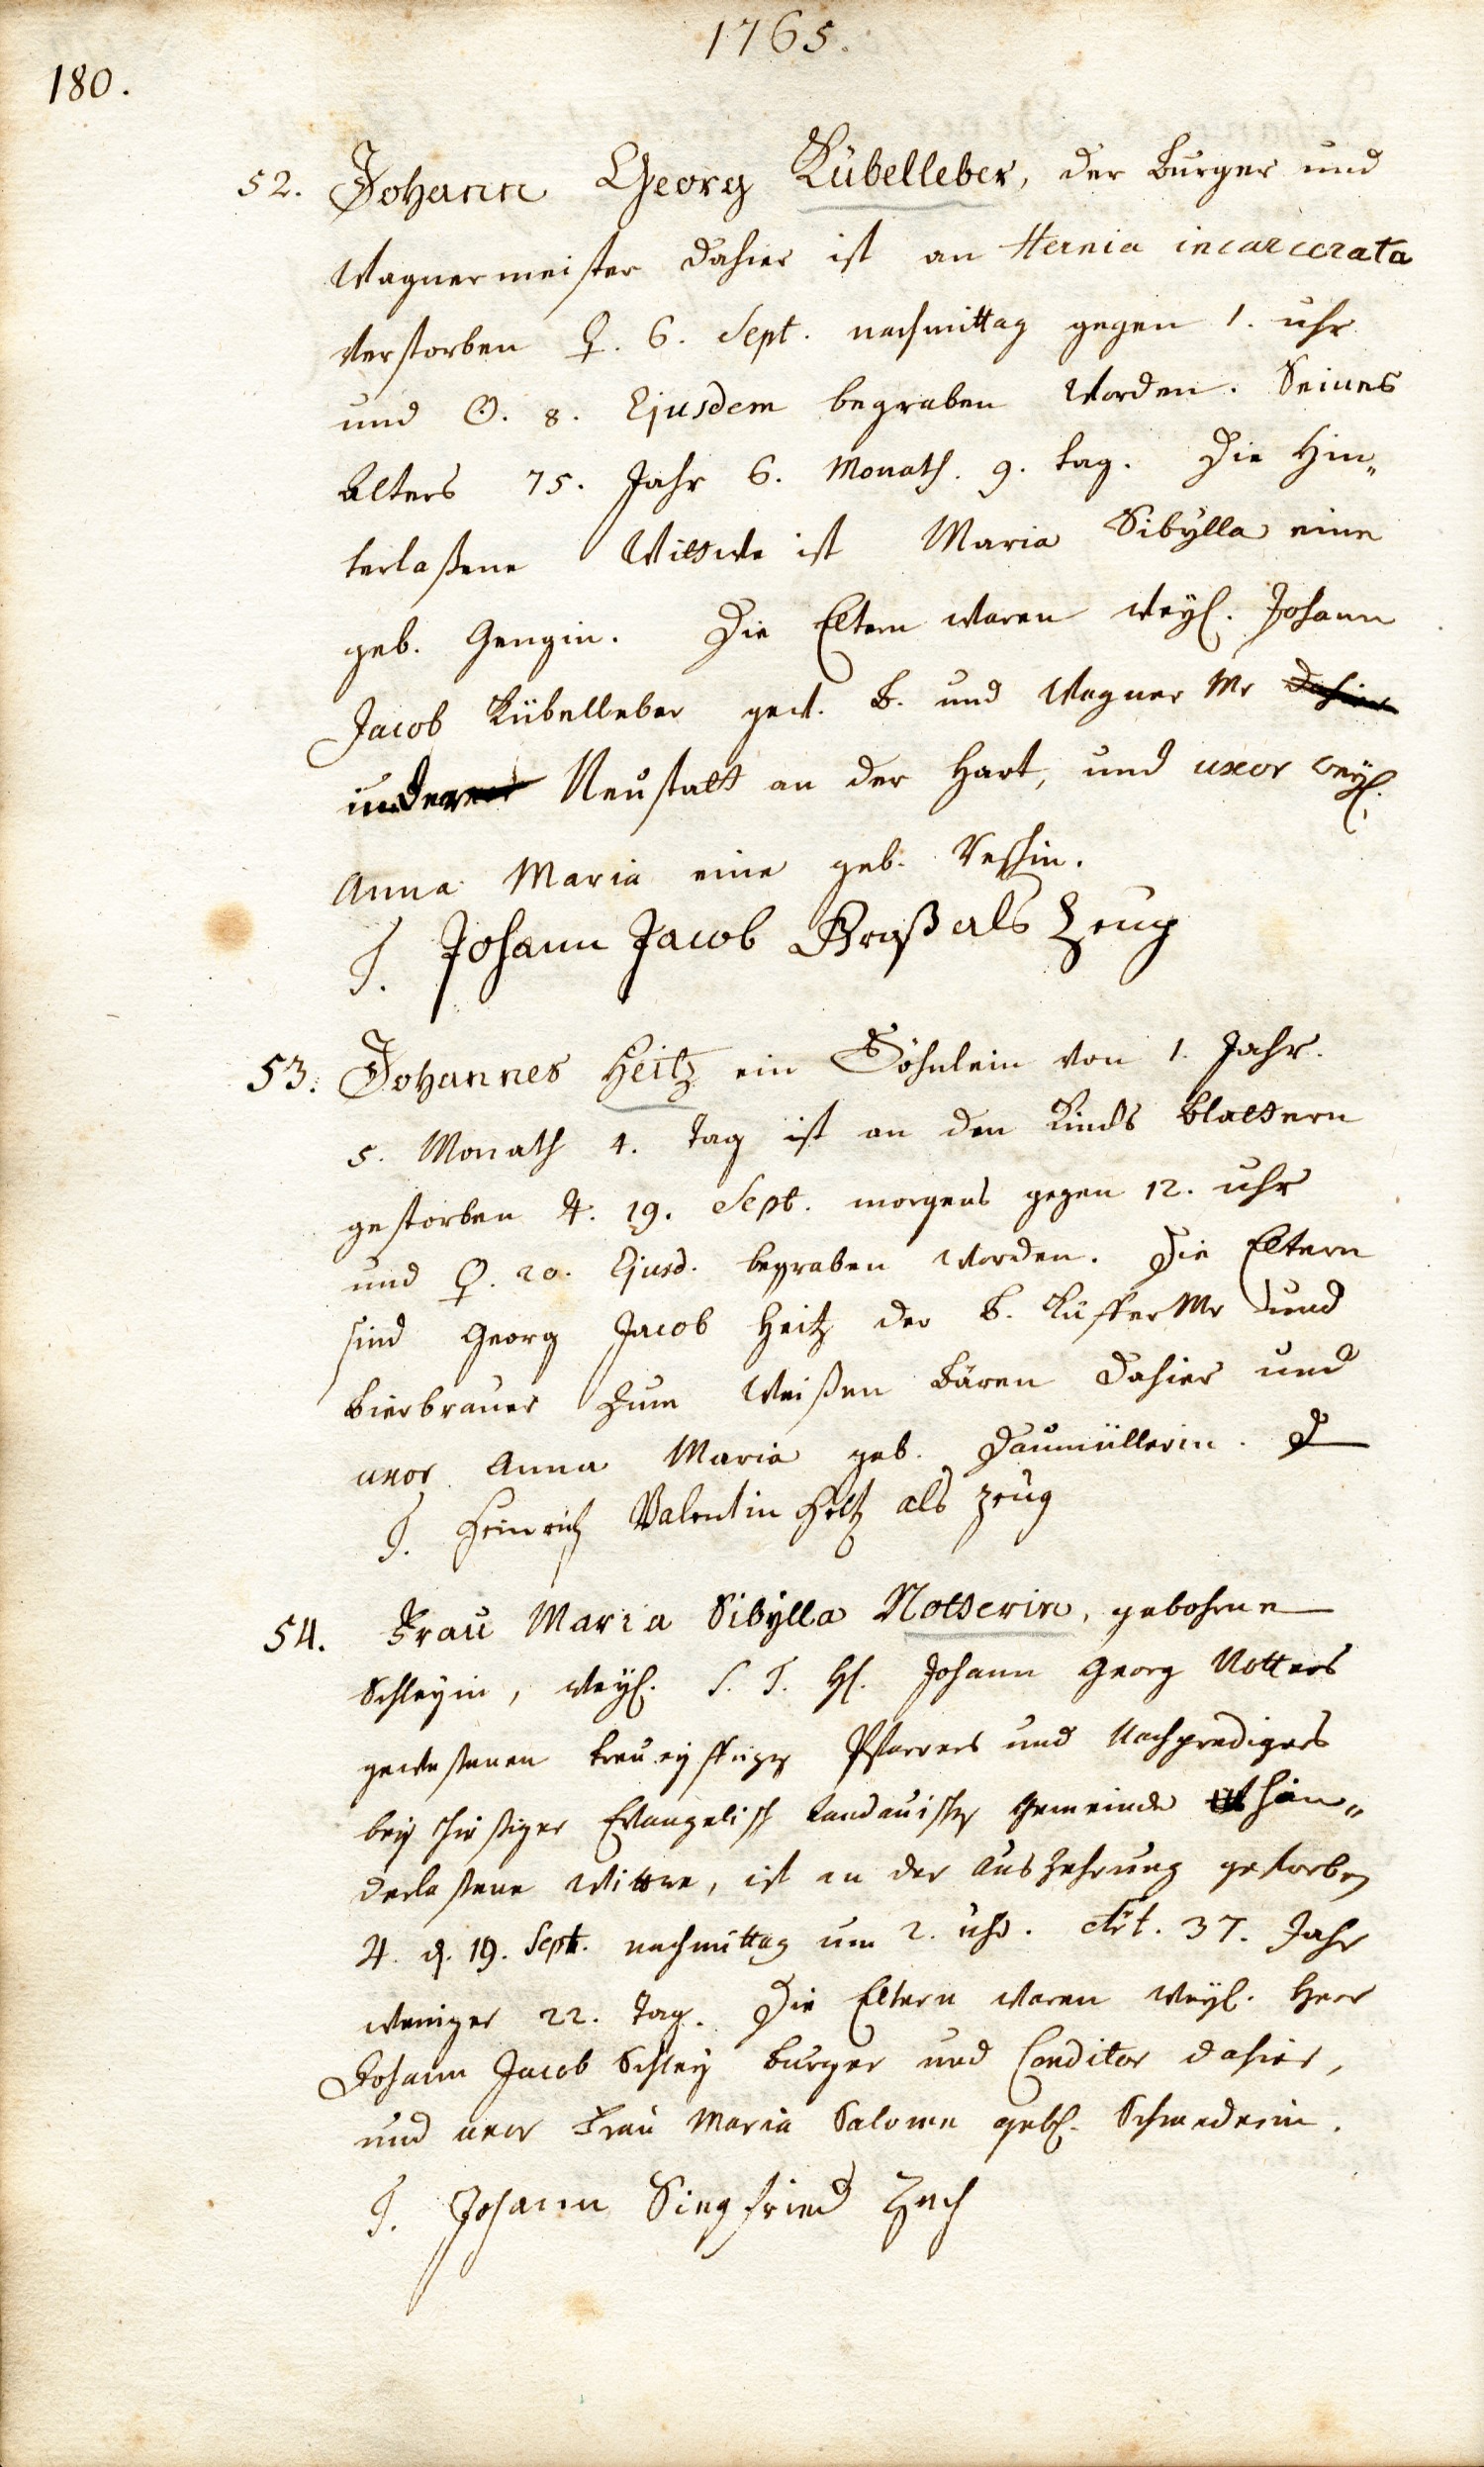 1765.
180.
52. Johann Georg Kübelleber, der Burger und
Wagnermeister dahier ist an Hernia incarcerata
verstorben ♀. 6. Sept. nachmittag gegen 1. uhr
und ☉. 8. Ejusdem begraben worden. Seines
Alters 75. Jahr 6. Monath. 9. tag. Die Hin„
terlaßene Wittwe ist Maria Sibÿlla eine
geb. Gengin. Die Eltern waren weyl. Johann
Jacob Kübelleber gew. B. und Wagner Mr dahier
Neustatt an der Hart, und uxor weyl.
Anna Maria eine geb.
T. Johann Jacob Groß als Zeug
53. Johannes Heitz ein Söhnlein von 1. Jahr.
5. Monath 4. Tag ist an den Kinds Blattern
gestorben ♃. 19. Sept. morgens gegen 12. uhr
und ♀. 20. Ejusd. begraben worden. Die Eltern
sind Georg Jacob Heitz der B. Küffer Mr und
Bierbrauer zum Weißen Bären dahier und
uxor Anna Maria geb. Daumüllerin.
T. Heinrich Valentin Heltz als Zeug
54. Frau Maria Sibÿlla Notterin, gebohrne
Schleyin, weyl. S. T. H. Johann Georg Notters
geweßenen treueyffrigen Pfarrers und Nachpredigers
bey hießiger Evangelisch Landauischen Gemeinde hin„
derlaßene Wittwe, ist an der Auszehrung gestorben
♃. d. 19. Sept. nachmittag um 2. uhr. Æt. 37. Jahr
weniger 22. Tag. Die Eltern waren weyl. Herr
Johann Jacob Schley Burger und Conditor dahier,
und uxor Frau Maria Salome geb. Schmederin.
T. Johann Siegfried Zech